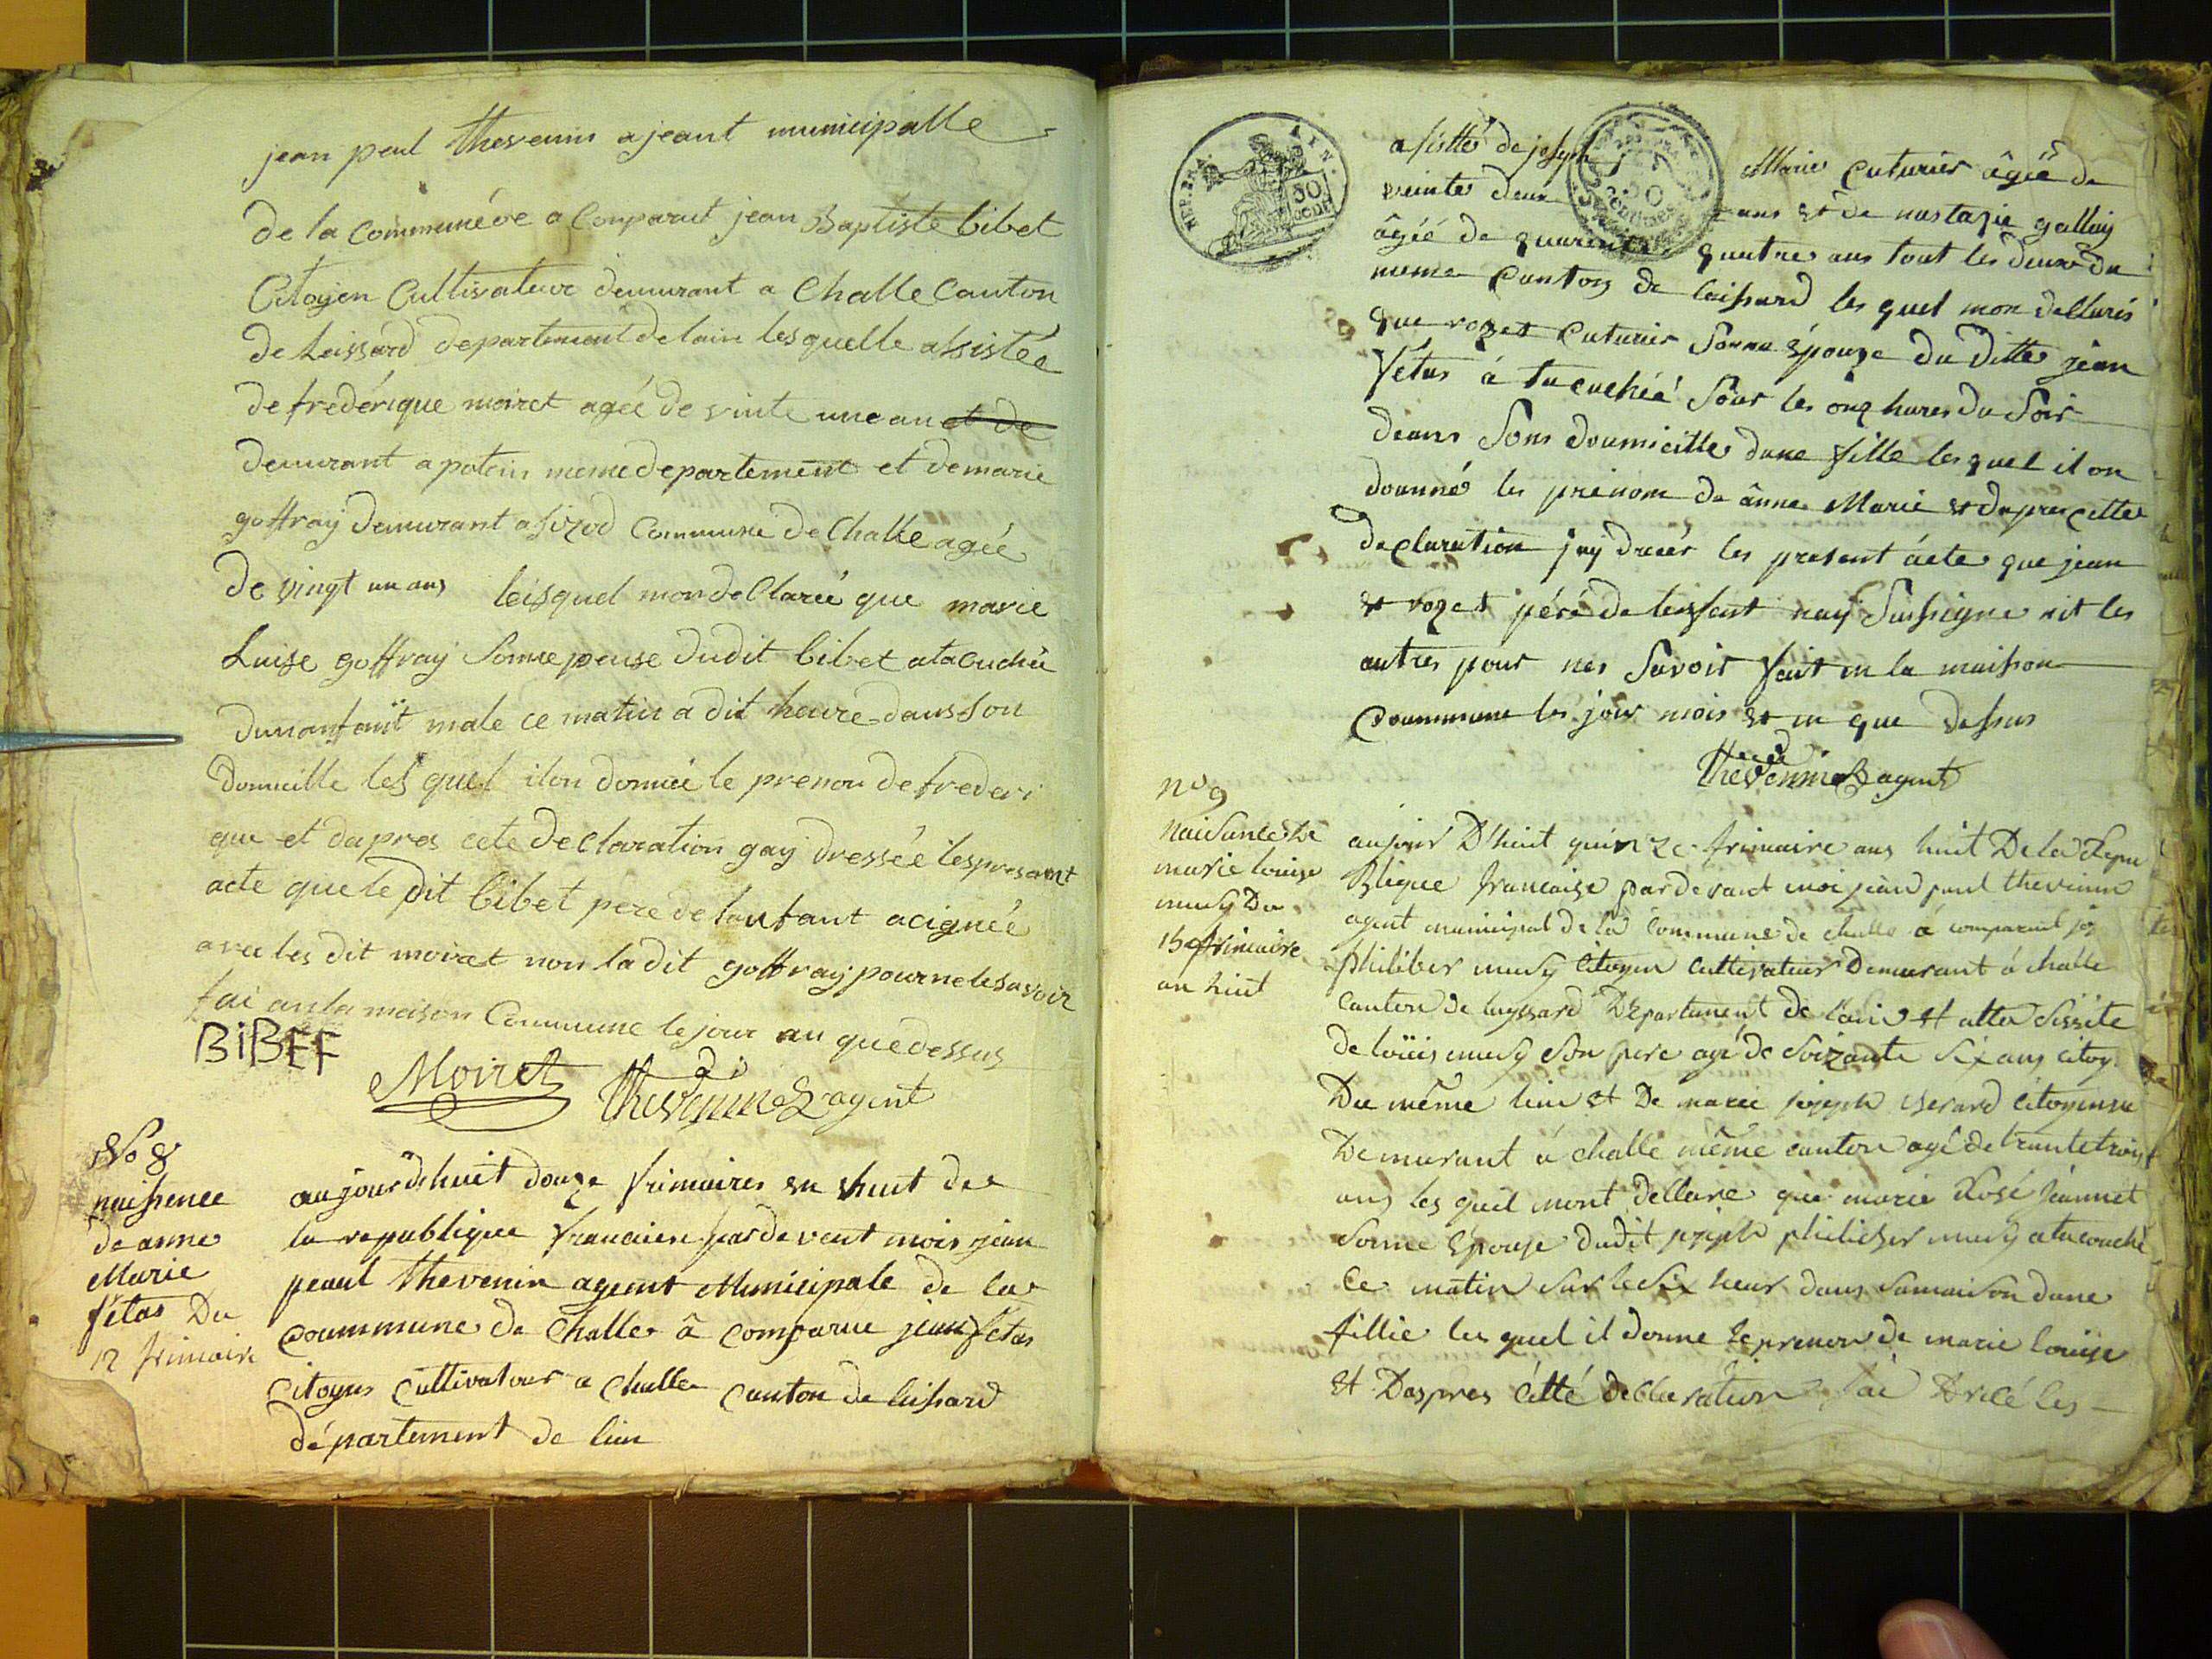 jean peul thevenin ajeant municipalle
de la Communéve a Comparut jean Baptiste bibet
Citoyen Cultivateur demurant a Challe Canton
de Leissard departement delain lesquelle assistée
de frederique moiret agée de vinte une an et de
demurant a potein meme departement et demarie
goffray demurant a sizod Commune de Challe agée
de vingt un ans leisquel mon de Clareé que marie
Luise goffray Somme peuse dudit bibet atacuchée
dunanfant male ce matin a dit heure dans son
domicille lesquel ilon donneé le prenon de frederi
que et dapres cete de Claration gay dresseé lespresant
acte que le dit bibet pere de lanfant acigneé
avec les dit moiret non ladit goffray pour ne le savoir
fai an la maison Commune le jour an que dessus
BiBEF
Moiret Thevenin agent
No 8
naissence
de anne
Marie
fétas Du
12 frimaire
aujourdhuit douze frimaires en vhuit de
la republique francaise par de vent mois jean
peaul thevenin agent Municipale de la
Coummune de Challe â comparue jean fetas
Citoyen Cultivatour a Challe Canton de leissard
département de lin
REP. FRA. AIN.
50
CODE
asistté de joseph Marie Cuturier âgéé de
veinte deux ans et de nastazie gallay
âgéé de quarente quatre ans tout les deux du
meme Canton de leissard les quel mon dellarés
que rozet Cuturier Sonne épouze du ditte jean
fétas á tacuchéé Sour les onz hures du Soir
deans Sons doumicille dune fille les quel il on
dounné les prénom de ânne Marie et dapres cette
declaration jay dreér les present ácte que jean
et rozet péré de lenfant nay Sussigne nit les
autres pour nes Savoir fait en la maison
Coummune les jour mois et en que dessus
Thevenin agent
no 9
Naisance de
marie louise
musy Du
15 frimaire
an huit
aujour D'huit quinze frimaire ans huit De la Repu
Blique francaise par de vant moi jean paul thevinin
agent municipal de la Commune de challe á comparuit jos
philiber musy Citoyen Cultivateur Demurant á challe
Canton de leyssard Département de l'ain et atte Sissite
de loüis musy son pere agé de Soizante Six ans citoy
Du même lieu et De marie joseph Gerard Citoyenne
Demurant á challe même canton agé de trante trois
ans les quel mont dellare que marie Rosé jeannet
Sonne Epouse dudit joseph philiber musy a tacouché
Ce matin Sur le Six heur dans Samaison dune
fillie les quel il donne le prenon de marie louise
et Daspres Cétté declaration jái Drécé les